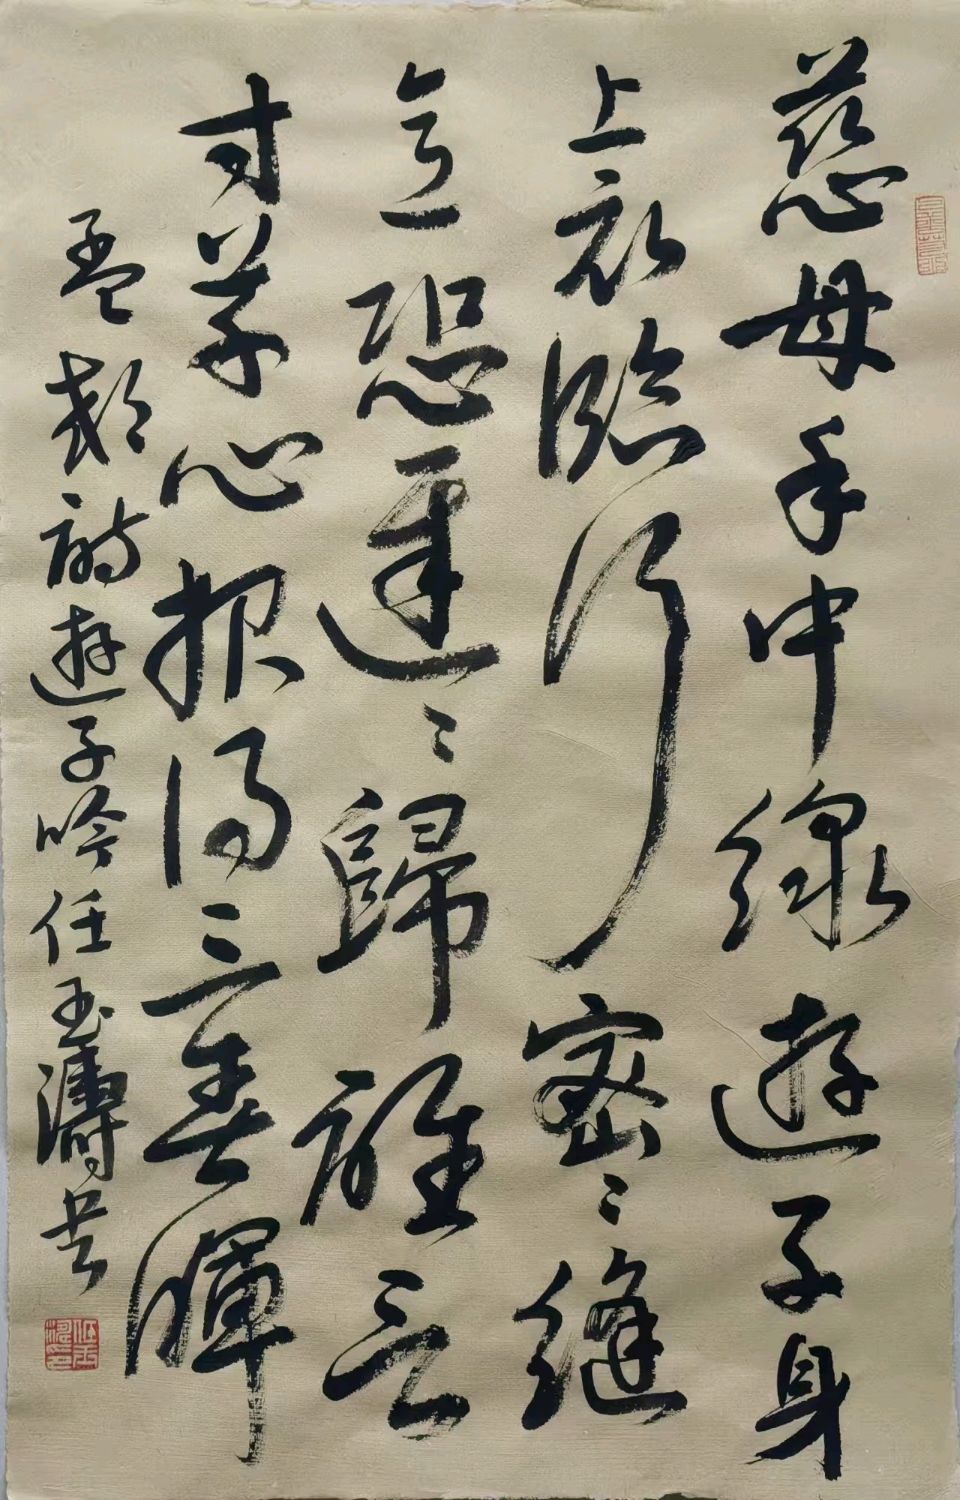 慈母手中線遊子身
上衣臨行密〻縫
意恐遲〻歸誰言
寸草心報得三春暉
孟郊詩遊子吟任玉濤书
任玉濤印